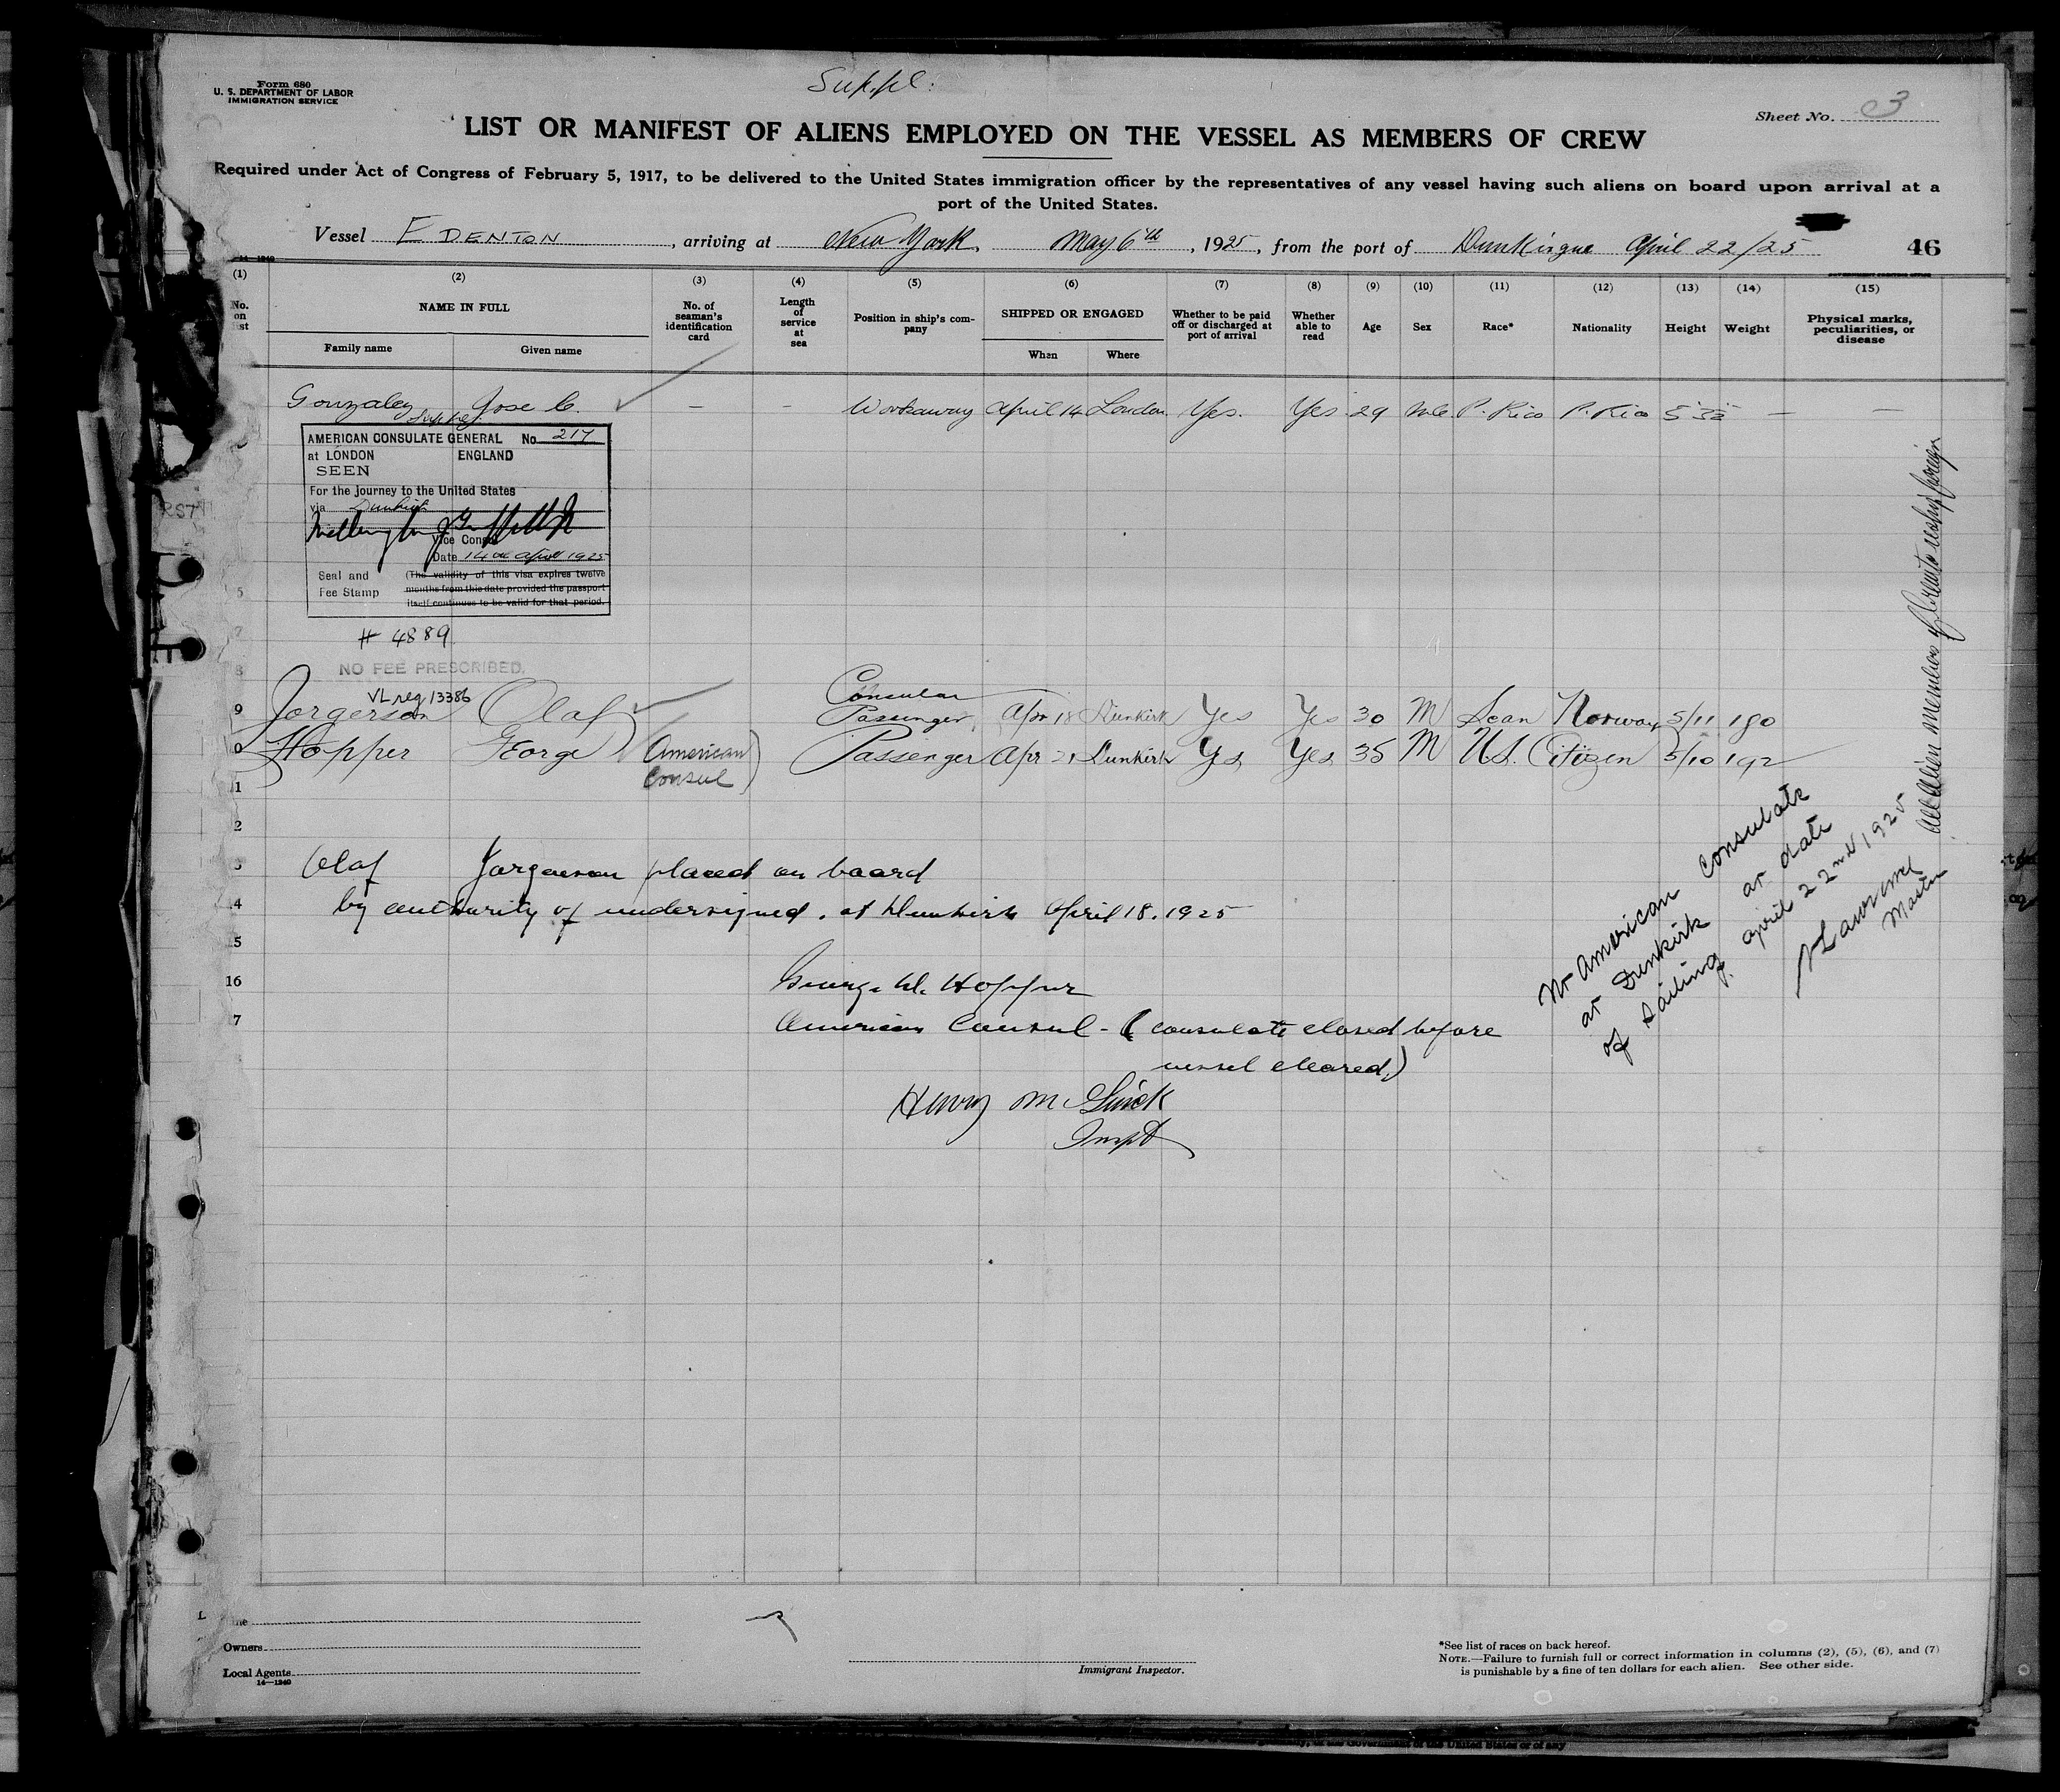 Form 680
U. S. DEPARTMENT OF LABOR
IMMIGRATION SERVICE
Suppl.
Sheet No. 3
LIST OR MANIFEST OF ALIENS EMPLOYED ON THE VESSEL AS MEMBERS OF CREW
Required under Act of Congress of February 5, 1917, to be delivered to the United States immigration officer by the representatives of any vessel having such aliens on board upon arrival at a
port of the United States.
Vessel EDENTON, arriving at New York, May 6th, 1925, from the port of Dunkirque April 22/25
46
(1) (2) (3) (4) (5) (6) (7) (8) (9) (10) (11) (12) (13) (14) (15)
No. on list
NAME IN FULL
Family name Given name
No. of seaman's identification card
Length of service at sea
Position in ship's company
SHIPPED OR ENGAGED
When Where
Whether to be paid off or discharged at port of arrival
Whether able to read
Age
Sex
Race*
Nationality
Height
Weight
Physical marks, peculiarities, or disease
Gonzalez Jose C. — — Workaway April 14 London Yes. Yes 29 P. Rico P. Rico — —
Suppl.
AMERICAN CONSULATE GENERAL No. 217
at LONDON ENGLAND
SEEN
For the Journey to the United States
via Dunkirk
Vice Consul
Date 14th April 1925
Seal and Fee Stamp
(The validity of this visa expires twelve
months from this date provided the passport
itself continues to be valid for that period.
# 4889
NO FEE PRESCRIBED.
VL reg 13386
8
9 Jorgerson Olaf Consular Passenger Apr 18 Dunkirk Yes Yes 30 M Scan Norway 5/11 180
Hopper George (American Consul) Passenger Apr 21 Dunkirk Yes Yes 35 M U.S. Citizen 5/10 192
1
2
3 Olaf Jorgenson placed on board
4 by authority of undersigned, at Dunkirk April 18, 1925
15
16 George W. Hopper
7 American Consul - (consulate closed before
vessel cleared.)
Henry McGuick
Inspt
No American Consulate
at Dunkirk at date
of Sailing. April 22nd 1925
Master
All Alien members of crew to reship foreign
Line
Owners
Local Agents
14—1240
Immigrant Inspector.
*See list of races on back hereof.
NOTE.—Failure to furnish full or correct information in columns (2), (5), (6), and (7)
is punishable by a fine of ten dollars for each alien. See other side.